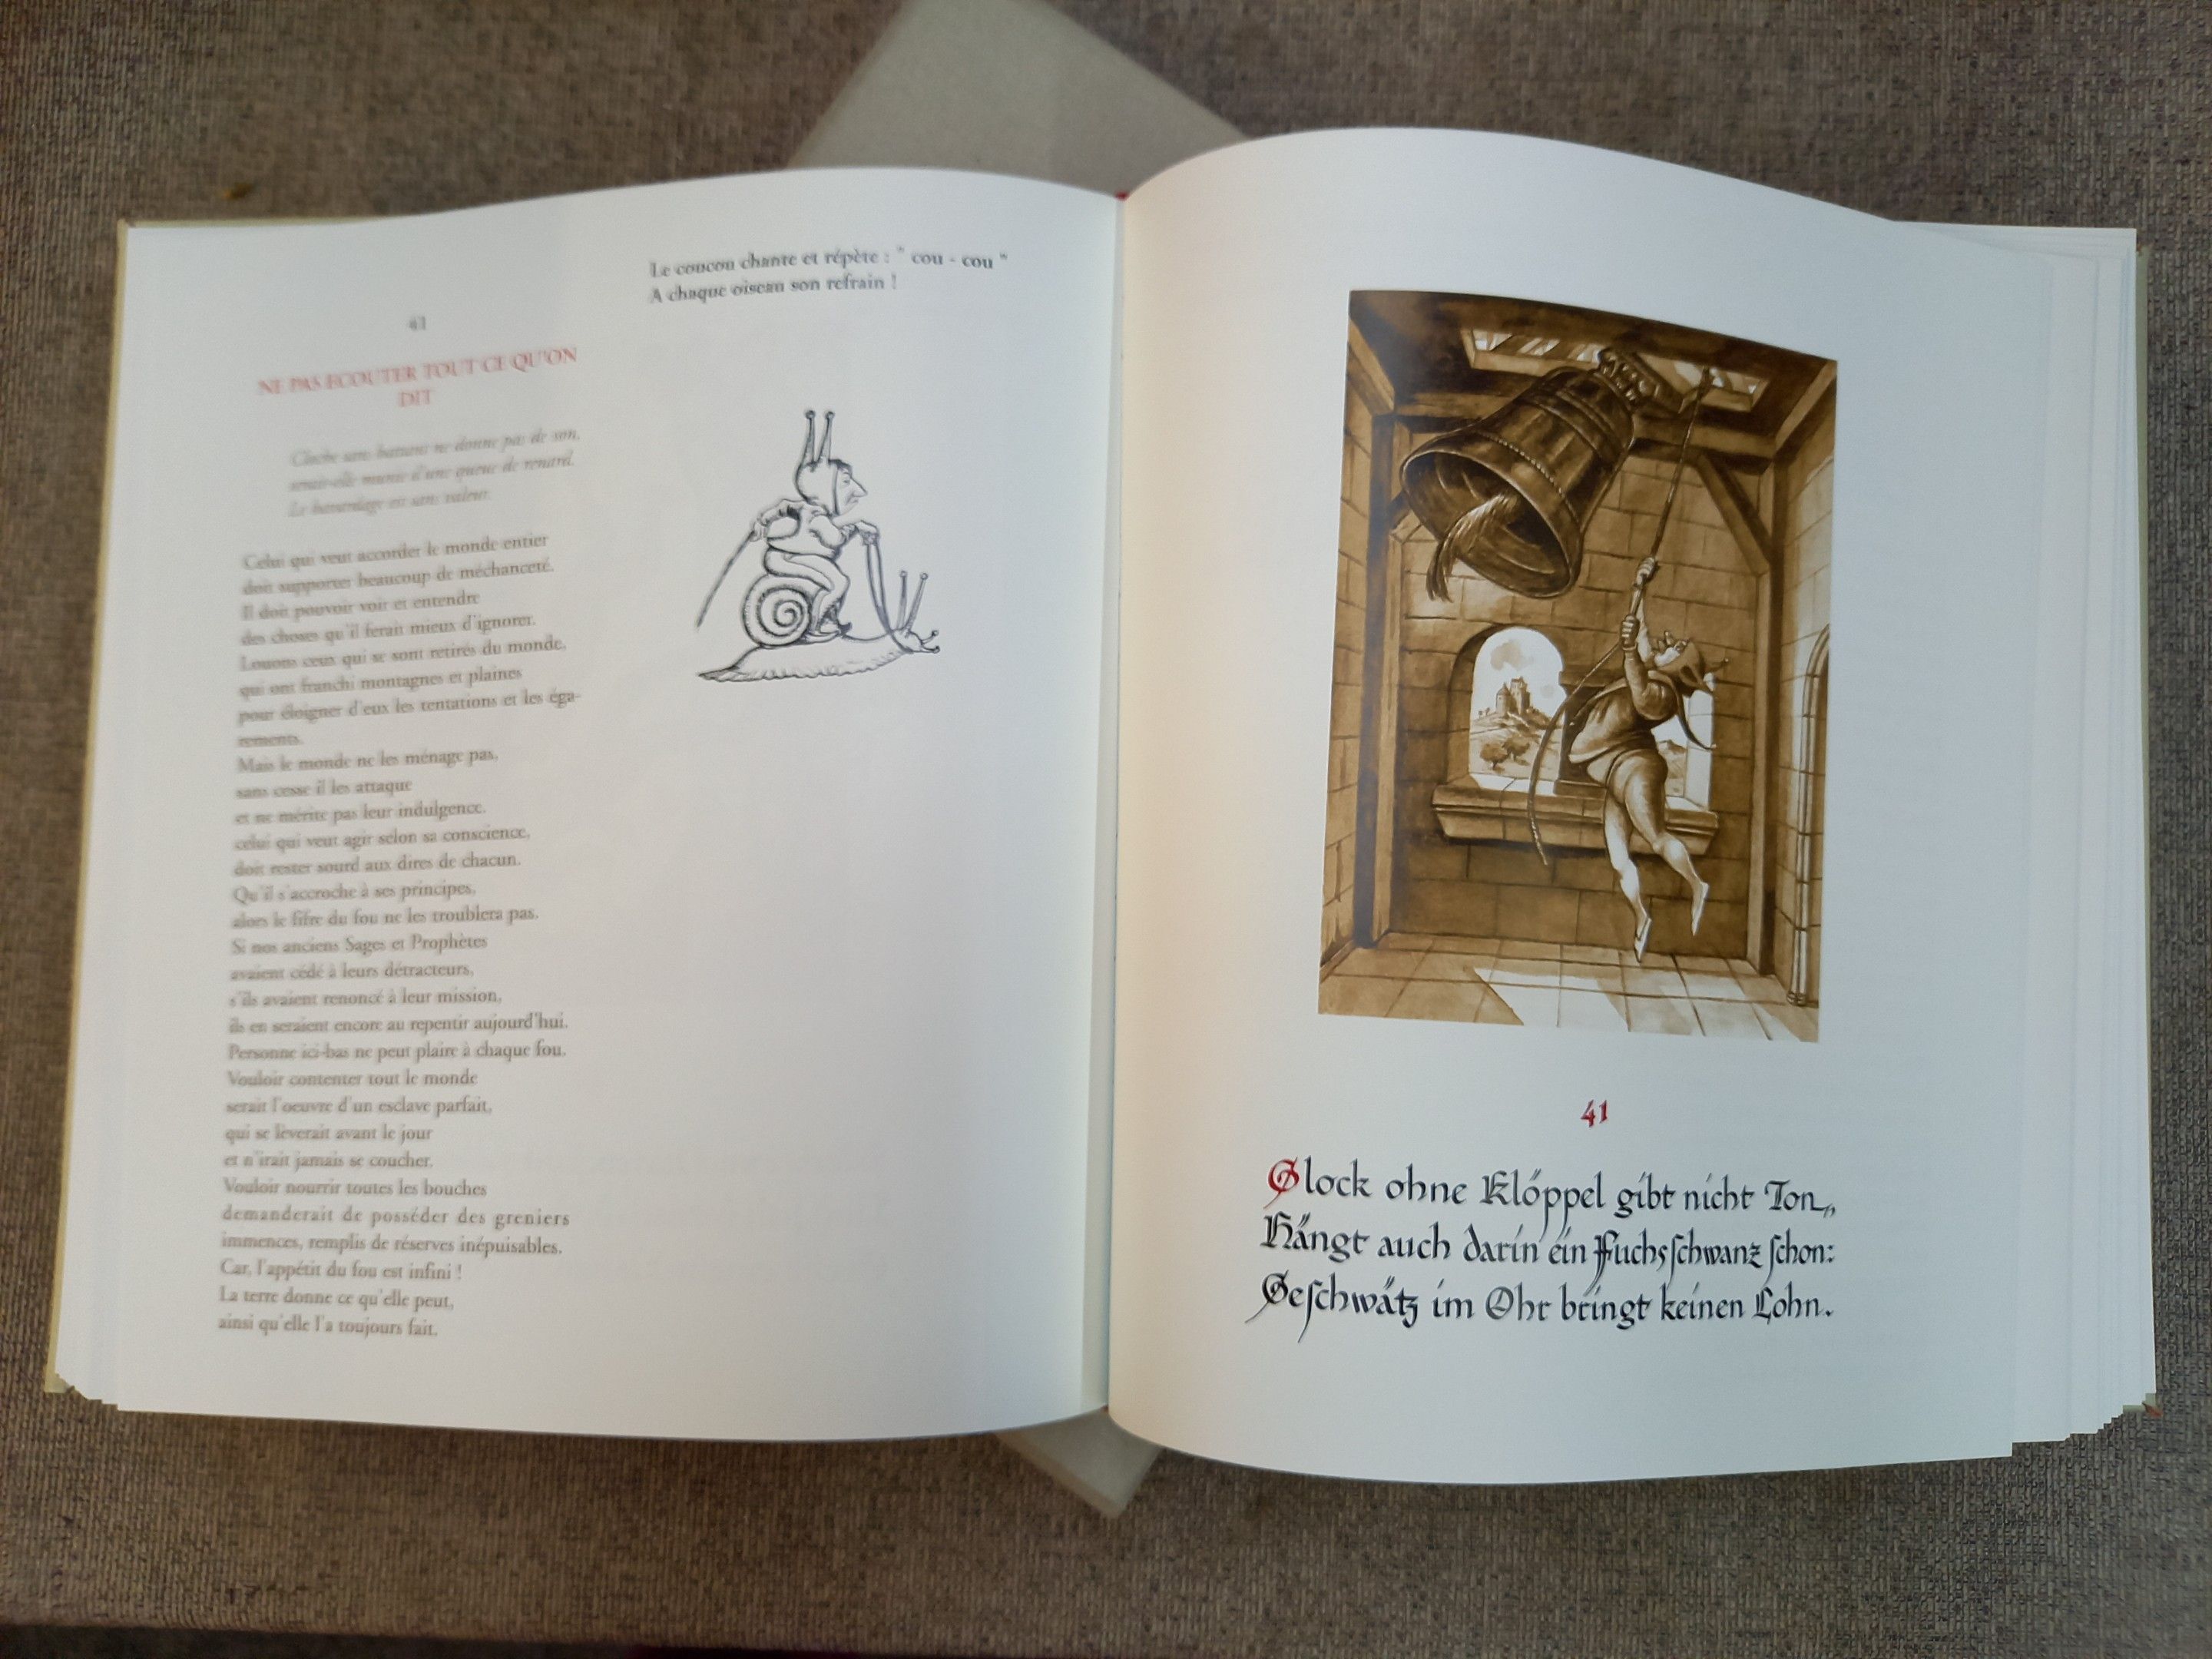 41
NE PAS ECOUTER TOUT CE QU'ON
DIT
Cloche sans battant ne donne pas de son,
serait-elle munie d'une queue de renard.
Le bavardage est sans valeur.
Celui qui veut accorder le monde entier
doit supporter beaucoup de méchanceté.
Il doit pouvoir voir et entendre
des choses qu'il ferait mieux d'ignorer.
Louons ceux qui se sont retirés du monde,
qui ont franchi montagnes et plaines
pour éloigner d'eux les tentations et les éga-
rements.
Mais le monde ne les ménage pas,
sans cesse il les attaque
et ne mérite pas leur indulgence.
celui qui veut agir selon sa conscience,
doit rester sourd aux dires de chacun.
Qu'il s'accroche à ses principes,
alors le fifre du fou ne les troublera pas.
Si nos anciens Sages et Prophètes
avaient cédé à leurs détracteurs,
s'ils avaient renoncé à leur mission,
ils en seraient encore au repentir aujourd'hui.
Personne ici-bas ne peut plaire à chaque fou.
Vouloir contenter tout le monde
serait l'oeuvre d'un esclave parfait,
qui se lèverait avant le jour
et n'irait jamais se coucher.
Vouloir nourrir toutes les bouches
demanderait de posséder des greniers
immences, remplis de réserves inépuisables.
Car, l'appétit du fou est infini !
La terre donne ce qu'elle peut,
ainsi qu'elle l'a toujours fait.
Le coucou chante et répète : " cou - cou "
A chaque oiseau son refrain !
41
Glock ohne Klöppel gibt nicht Ton,,
Hängt auch darin ein Fuchsſchwanz ſchon:
Geſchwätz im Ohr bringt keinen Lohn.